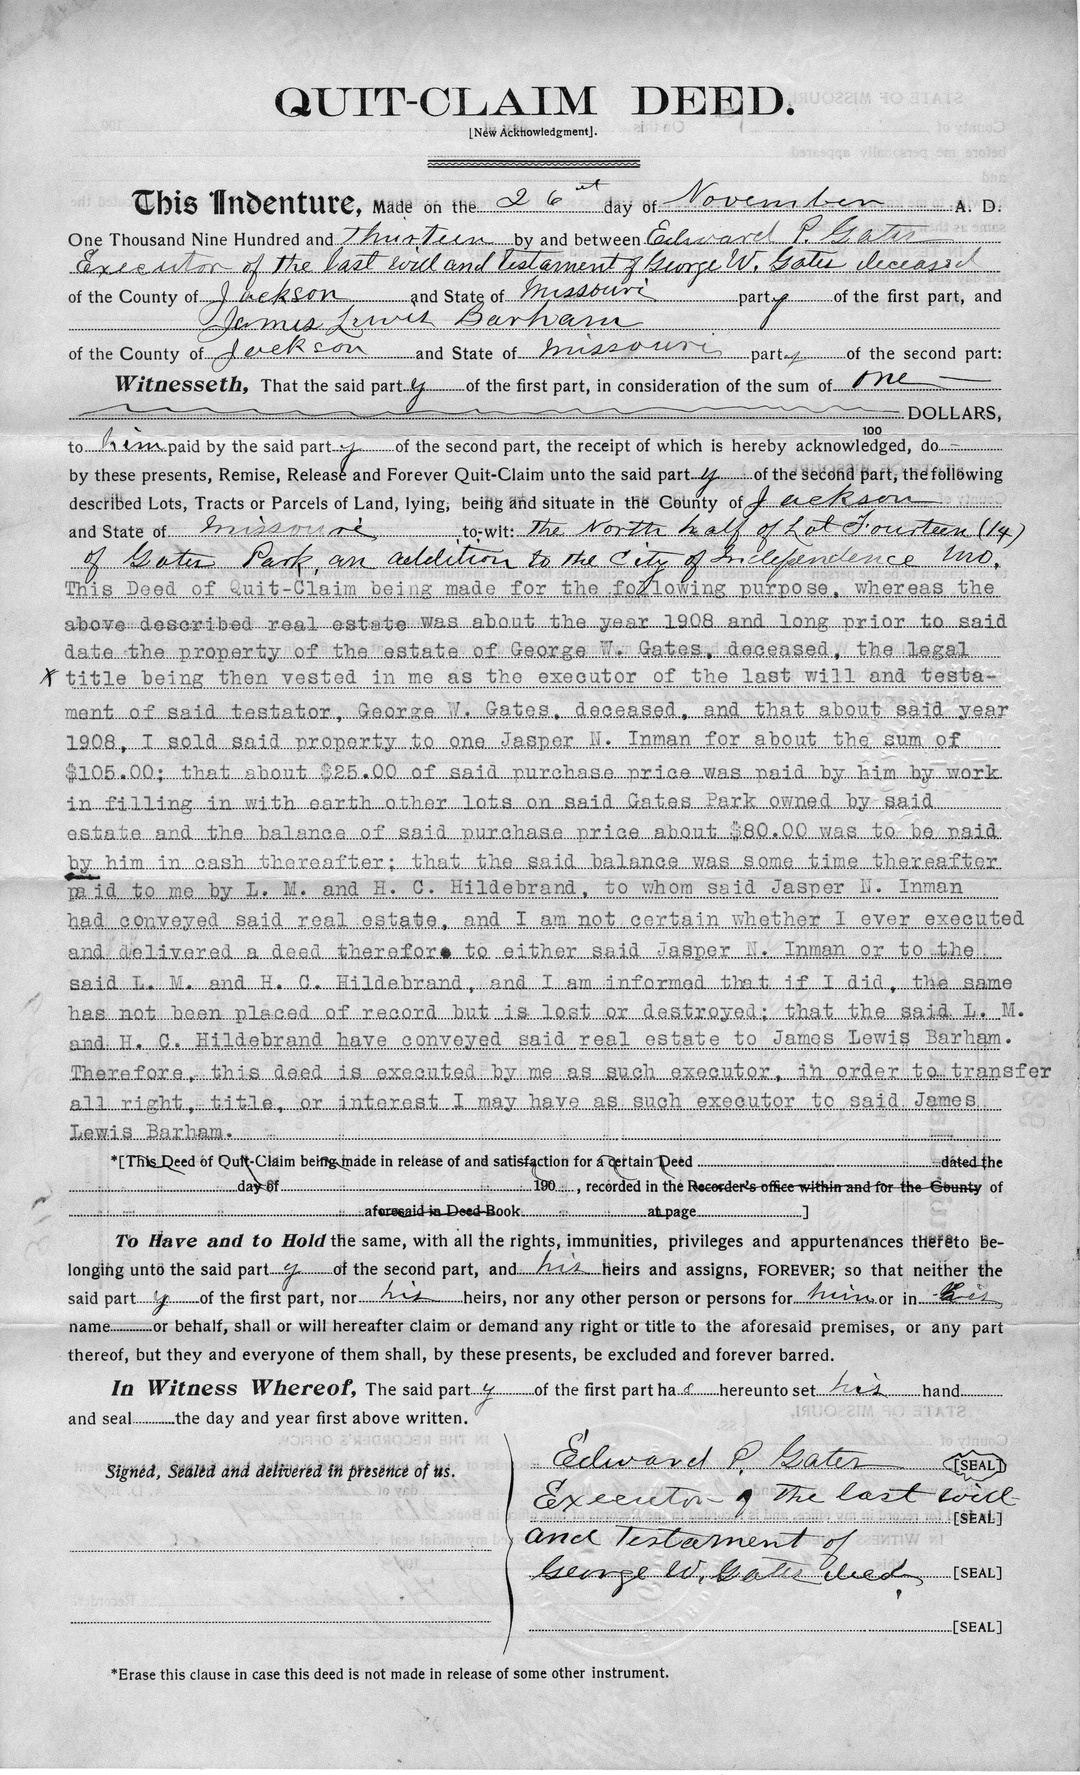 QUIT-CLAIM DEED.
[New Acknowledgment].
This Indenture, Made on the 26st day of November A. D.
One Thousand Nine Hundred and thirteen by and between Edward P. Gates
Executor of the last will and testament of George W. Gates deceased
of the County of Jackson and State of Missouri party of the first part, and
James Lewis Barham
of the County of Jackson and State of Missouri party of the second part:
Witnesseth, That the said party of the first part, in consideration of the sum of one
DOLLARS,
100
to him paid by the said party of the second part, the receipt of which is hereby acknowledged, do
by these presents, Remise, Release and Forever Quit-Claim unto the said party of the second part, the following
described Lots, Tracts or Parcels of Land, lying, being and situate in the County of Jackson
and State of Missouri to-wit: the North half of Lot Fourteen (14)
of Gates Park, an addition to the City of Independence Mo.
This Deed of Quit-Claim being made for the following purpose, whereas the
above described real estate was about the year 1908 and long prior to said
date the property of the estate of George W. Gates, deceased, the legal
x title being then vested in me as the executor of the last will and testa-
ment of said testator, George W. Gates, deceased, and that about said year
1908, I sold said property to one Jasper N. Inman for about the sum of
$105.00; that about $25.00 of said purchase price was paid by him by work
in filling in with earth other lots on said Gates Park owned by said
estate and the balance of said purchase price about $80.00 was to be paid
by him in cash thereafter; that the said balance was some time thereafter
paid to me by L. M. and H. C. Hildebrand, to whom said Jasper N. Inman
had conveyed said real estate, and I am not certain whether I ever executed
and delivered a deed therefore to either said Jasper N. Inman or to the
said L. M. and H. C. Hildebrand, and I am informed that if I did, the same
has not been placed of record but is lost or destroyed; that the said L. M.
and H. C. Hildebrand have conveyed said real estate to James Lewis Barham.
Therefore, this deed is executed by me as such executor, in order to transfer
all right, title, or interest I may have as such executor to said James
Lewis Barham.
*[This Deed of Quit-Claim being made in release of and satisfaction for a certain Deed dated the
day of 190 , recorded in the Recorder's office within and for the County of
aforesaid in Deed Book at page ]
To Have and to Hold the same, with all the rights, immunities, privileges and appurtenances thereto be-
longing unto the said party of the second part, and his heirs and assigns, FOREVER; so that neither the
said party of the first part, nor his heirs, nor any other person or persons for him or in his
name or behalf, shall or will hereafter claim or demand any right or title to the aforesaid premises, or any part
thereof, but they and everyone of them shall, by these presents, be excluded and forever barred.
In Witness Whereof, The said party of the first part has hereunto set his hand
and seal the day and year first above written.
Signed, Sealed and delivered in presence of us.
Edward P. Gates [SEAL]
Executor of the last will
[SEAL]
and Testament of
George W. Gates decd, [SEAL]
[SEAL]
*Erase this clause in case this deed is not made in release of some other instrument.